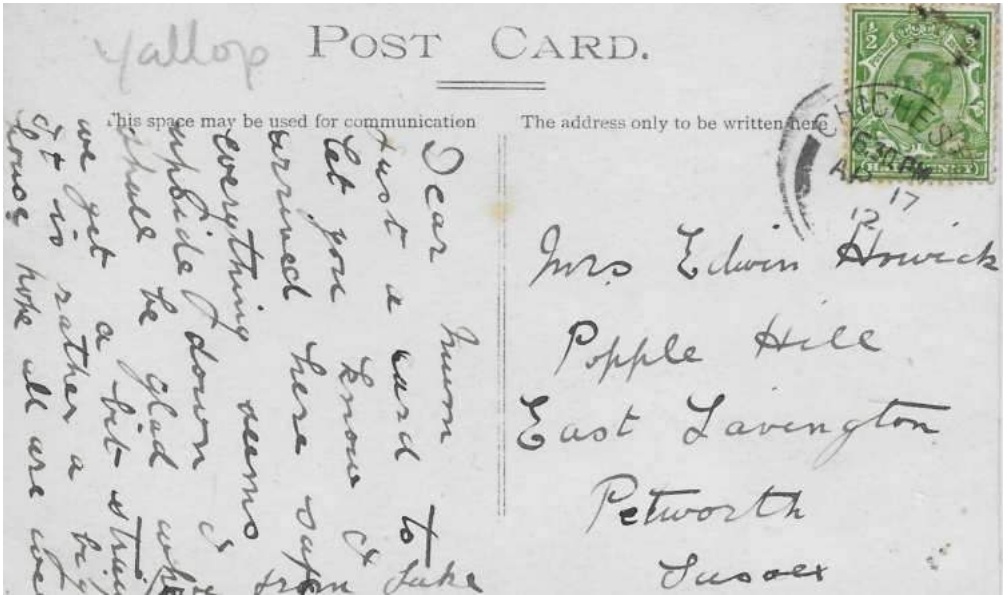 Yallop
POST CARD.
This space may be used for communication
The address only to be written here
½
CHICHEST
6.30 PM
AP 17
12
Dear Mum
Just a card to
let you know I
arrived here safe
everything seems
upside down I
shall be glad
we get a bit
it is rather a big
house hope all are
from Luke
Mrs Edwin Howick
Popple Hill
East Lavington
Petworth
Sussex